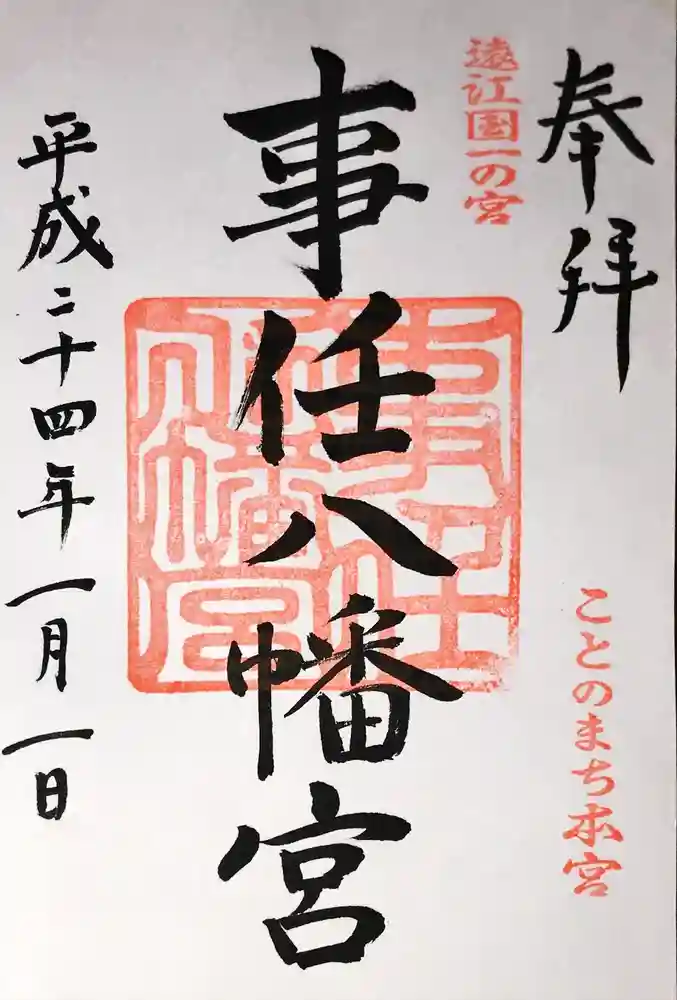 奉拝
ことのまち本宮
遠江国一の宮
事任八幡宮
事任八幡宮
平成二十四年一月一日